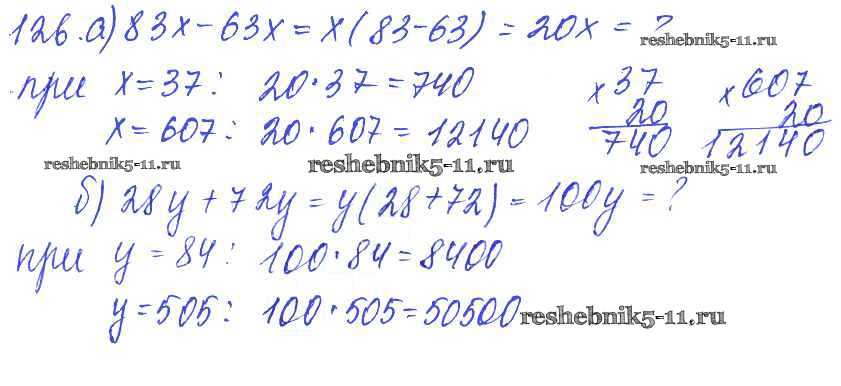 126. а) 83x - 63x = x(83 - 63) = 20x = ?
reshebnik5-11.ru
при x = 37: 20 · 37 = 740
x 37 x 607
x = 607: 20 · 607 = 12140
20 20
740 12140
reshebnik5-11.ru reshebnik5-11.ru reshebnik5-11.ru
б) 28y + 72y = y(28 + 72) = 100y = ?
при y = 84: 100 · 84 = 8400
y = 505: 100 · 505 = 50500
reshebnik5-11.ru